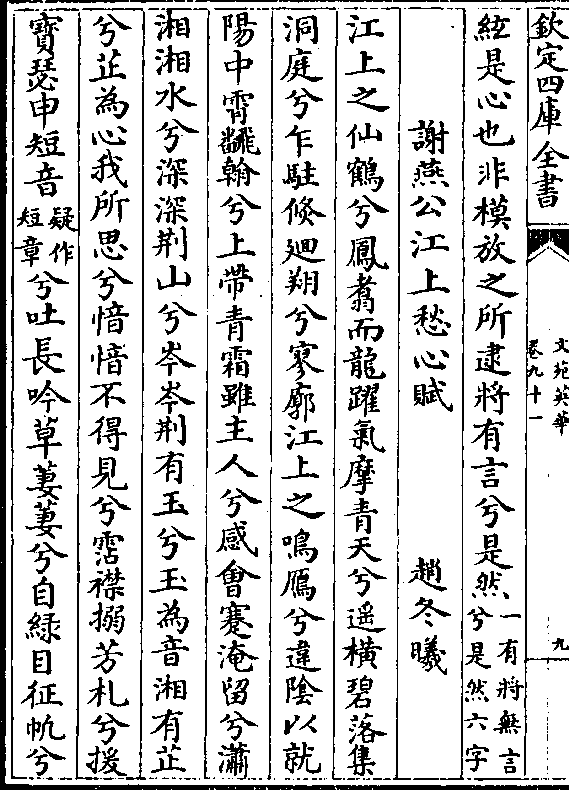 欽定四庫全書
文苑英華
卷九十一
九
絃是心也非模放之所逮將有言兮是然一有將無言兮是然六字
謝燕公江上愁心賦 趙冬曦
江上之仙鶴兮鳳翥而龍躍氣摩青天兮遥橫碧落集
洞庭兮乍駐倐廻翔兮寥廓江上之鳴鴈兮違陰以就
陽中霄飜翰兮上帶青霜雖主人兮感會蹇淹留兮瀟
湘湘水兮深深荆山兮岑岑荆有玉兮玉為音湘有芷
兮芷為心我所思兮愔愔不得見兮霑襟搦芳札兮援
寶瑟申短音疑作短章兮吐長吟草萋萋兮自緑目征帆兮